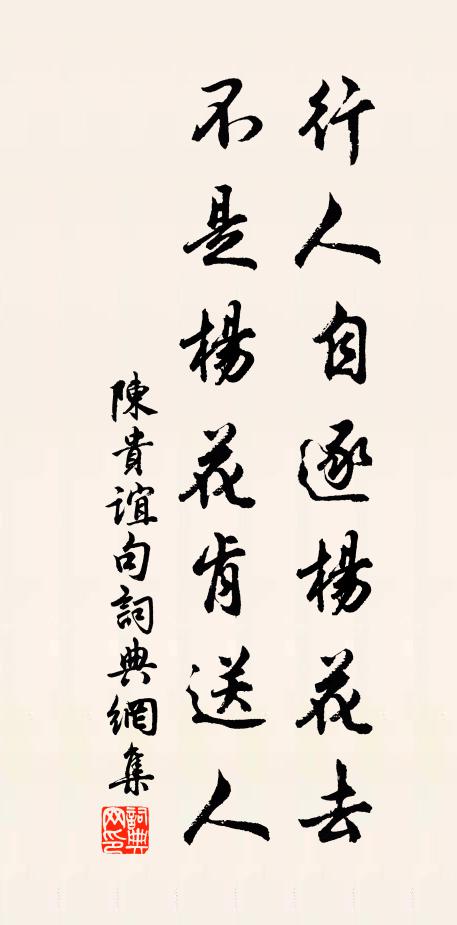 行人自逐楊花去
不是楊花肯送人
陳貴誼句詞典網集
詞典网印